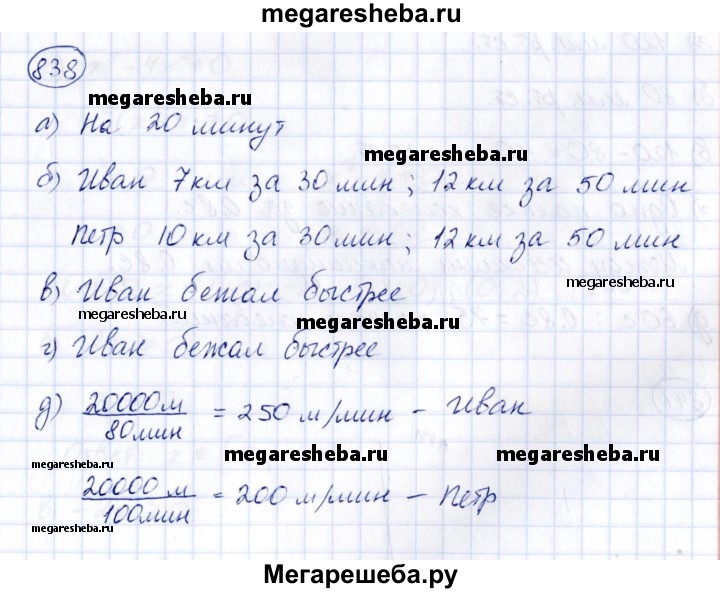 megaresheba.ru
838
megaresheba.ru
а) На 20 минут
megaresheba.ru
б) Иван 7км за 30 мин; 12 км за 50 мин
Петр 10 км за 30мин; 12 км за 50 мин
megaresheba.ru
в) Иван бежал быстрее
megaresheba.ru
megaresheba.ru
г) Иван бежал быстрее
д) 20000м / 80мин = 250 м/мин – Иван
megaresheba.ru
megaresheba.ru
megaresheba.ru
20000 м / 100мин = 200 м/мин – Петр
megaresheba.ru
Мегарешеба.ру